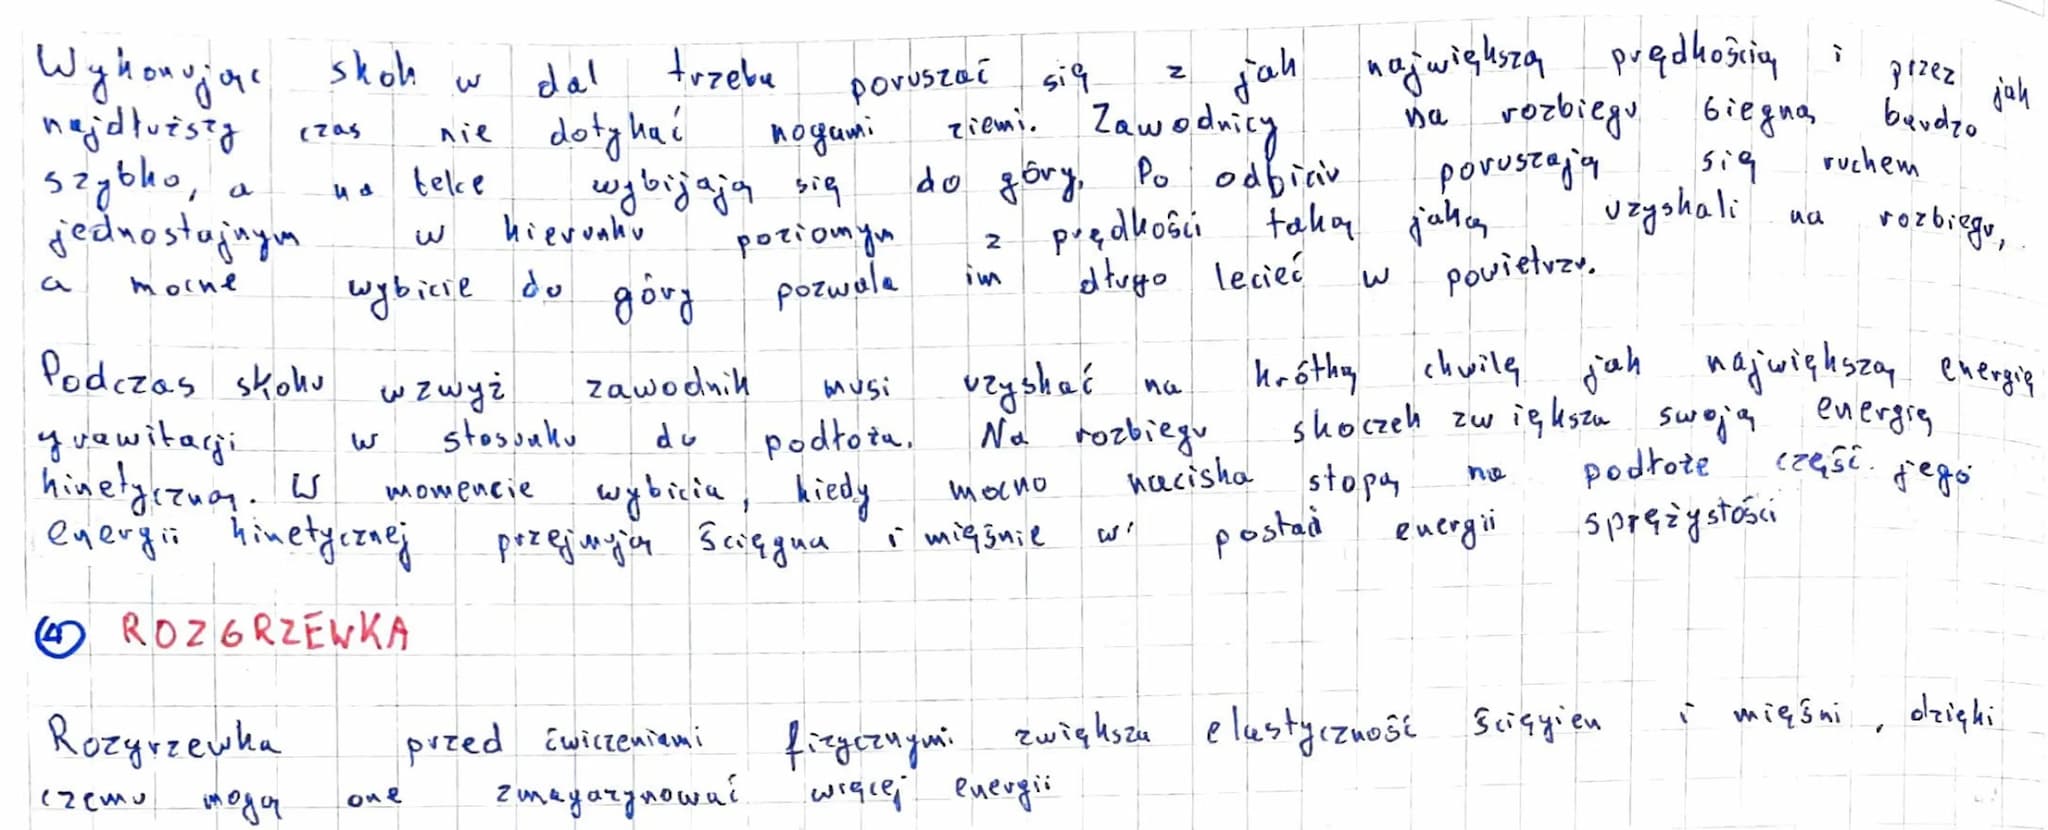 Wykonując skok w dal trzeba poruszać się z jak największą prędkością i przez jak
najdłuższy czas nie dotykać nogami ziemi. Zawodnicy na rozbiegu biegną bardzo
szybko, a na belce wybijają się do góry. Po odbiciu poruszają się ruchem
jednostajnym w kierunku poziomym z prędkości taką jaką uzyskali na rozbiegu,
a mocne wybicie do góry pozwala im długo lecieć w powietrzu.
Podczas skoku wzwyż zawodnik musi uzyskać na krótką chwilę jak największą energię
grawitacji w stosunku do podłoża. Na rozbiegu skoczek zwiększa swoją energię
kinetyczną. W momencie wybicia, kiedy mocno naciska stopą na podłoże część jego
energii kinetycznej przejmują ścięgna i mięśnie w postaci energii sprężystości
④ ROZGRZEWKA
Rozgrzewka przed ćwiczeniami fizycznymi zwiększa elastyczność ścięgien i mięśni, dzięki
czemu mogą one zmagazynować więcej energii